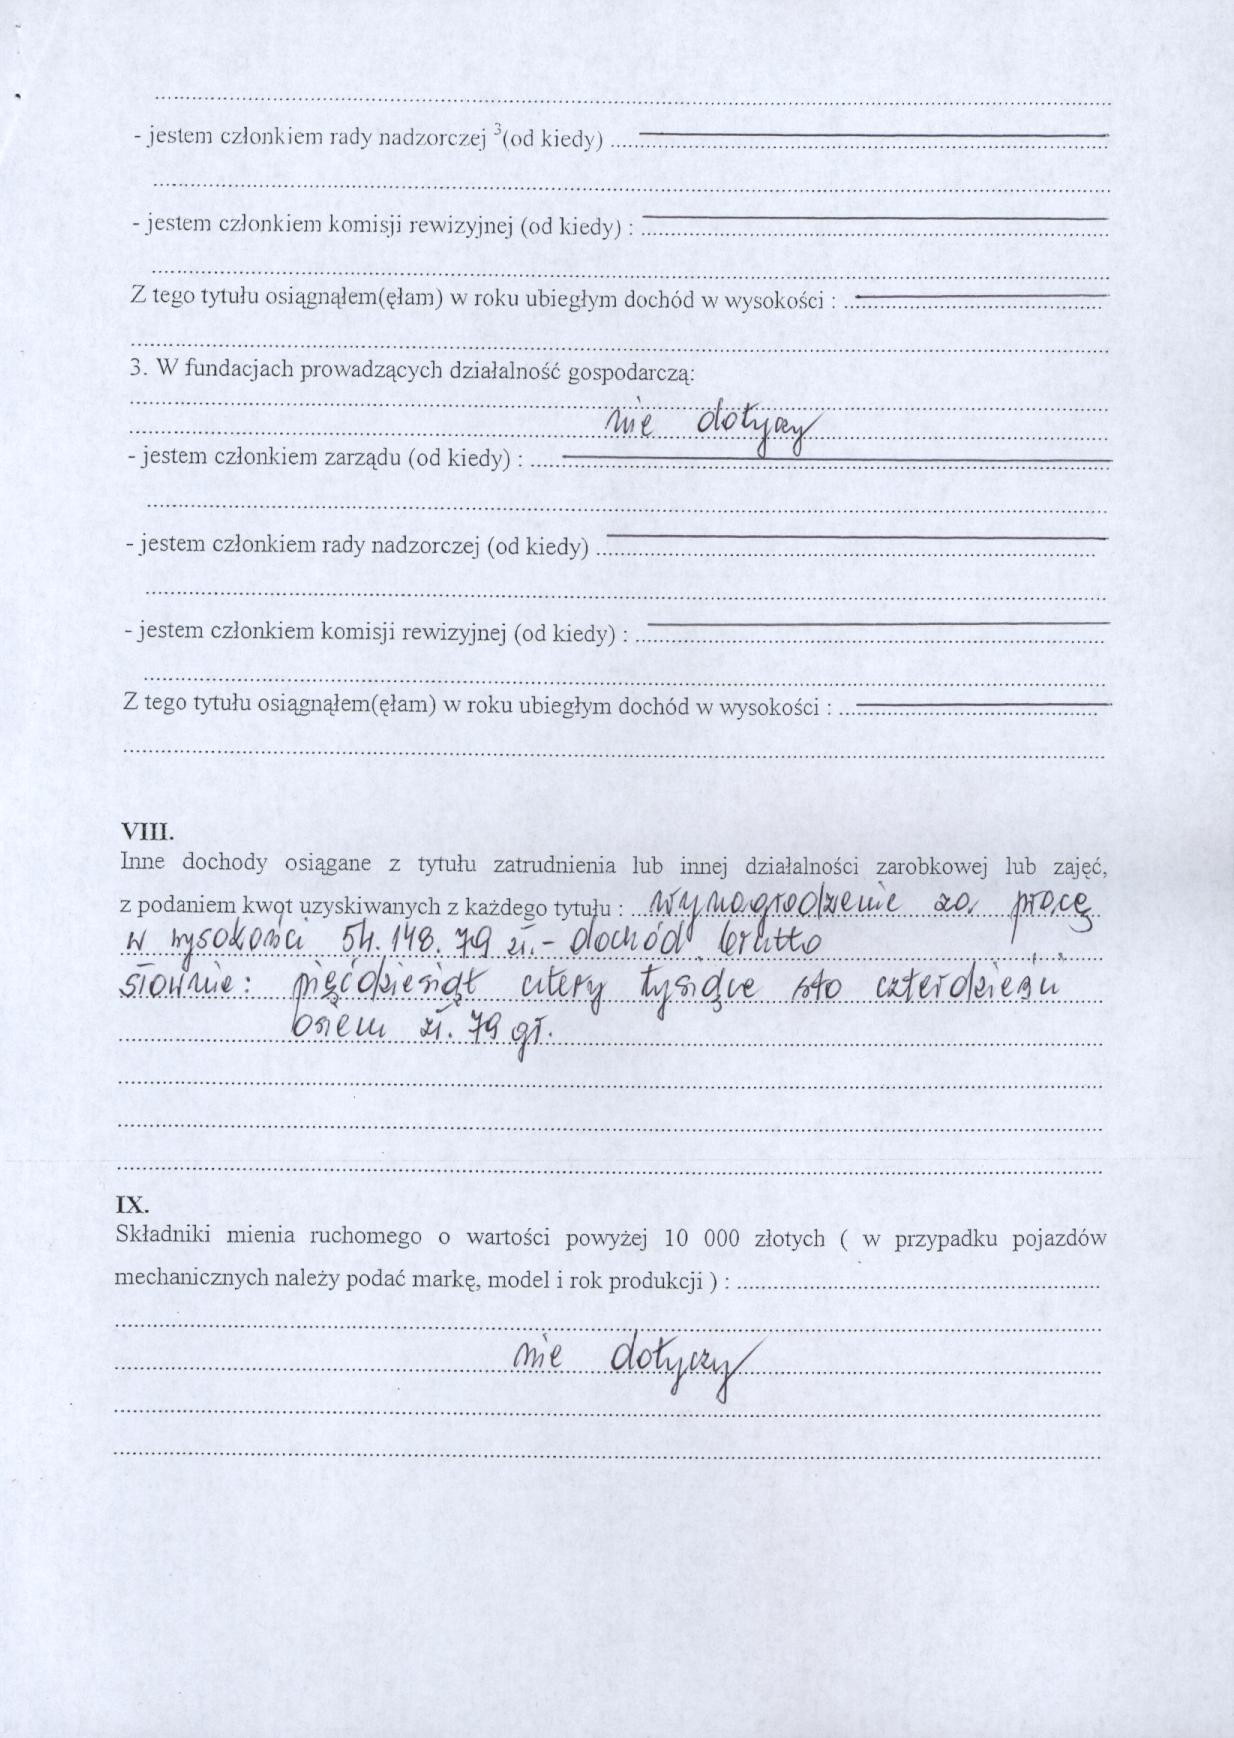 - jestem członkiem rady nadzorczej ³(od kiedy) ......
- jestem członkiem komisji rewizyjnej (od kiedy) : ......
Z tego tytułu osiągnąłem(ęłam) w roku ubiegłym dochód w wysokości : ......
3. W fundacjach prowadzących działalność gospodarczą:
nie dotyczy
- jestem członkiem zarządu (od kiedy) : ......
- jestem członkiem rady nadzorczej (od kiedy) ......
- jestem członkiem komisji rewizyjnej (od kiedy) : ......
Z tego tytułu osiągnąłem(ęłam) w roku ubiegłym dochód w wysokości : ......
VIII.
Inne dochody osiągane z tytułu zatrudnienia lub innej działalności zarobkowej lub zajęć,
z podaniem kwot uzyskiwanych z każdego tytułu : ...wynagrodzenie za pracę
w wysokości 54.148.79 zł.- dochód brutto
słownie: pięćdziesiąt cztery tysiące sto czterdzieści
osiem zł. 79 gr.
IX.
Składniki mienia ruchomego o wartości powyżej 10 000 złotych ( w przypadku pojazdów
mechanicznych należy podać markę, model i rok produkcji ) : ......
nie dotyczy